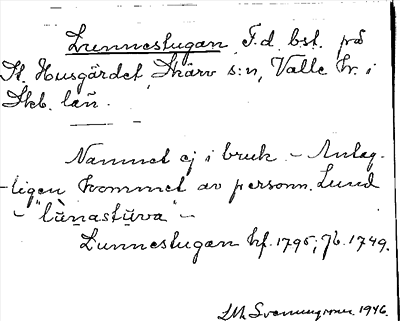 Lunnestugan F.d. bst. på
St. Husgärdet, Skärv s:n, Valle hr. i
Skb. län.
Namnet ej i bruk - Antag-
ligen kommet av personn. Lund
- "lùnastùva" -
Lunnestugan hf. 1795; jb. 1749.
1946.